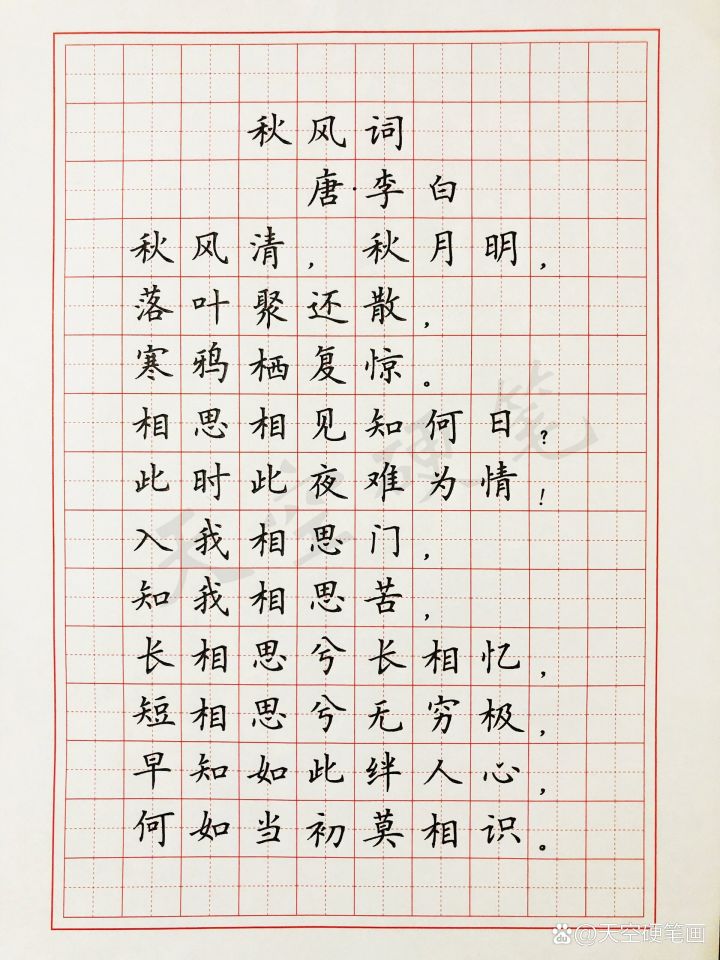 秋风词
唐·李白
秋风清，秋月明，
落叶聚还散，
寒鸦栖复惊。
相思相见知何日？
此时此夜难为情！
入我相思门，
知我相思苦，
长相思兮长相忆，
短相思兮无穷极，
早知如此绊人心，
何如当初莫相识。
天空硬笔
@天空硬笔画